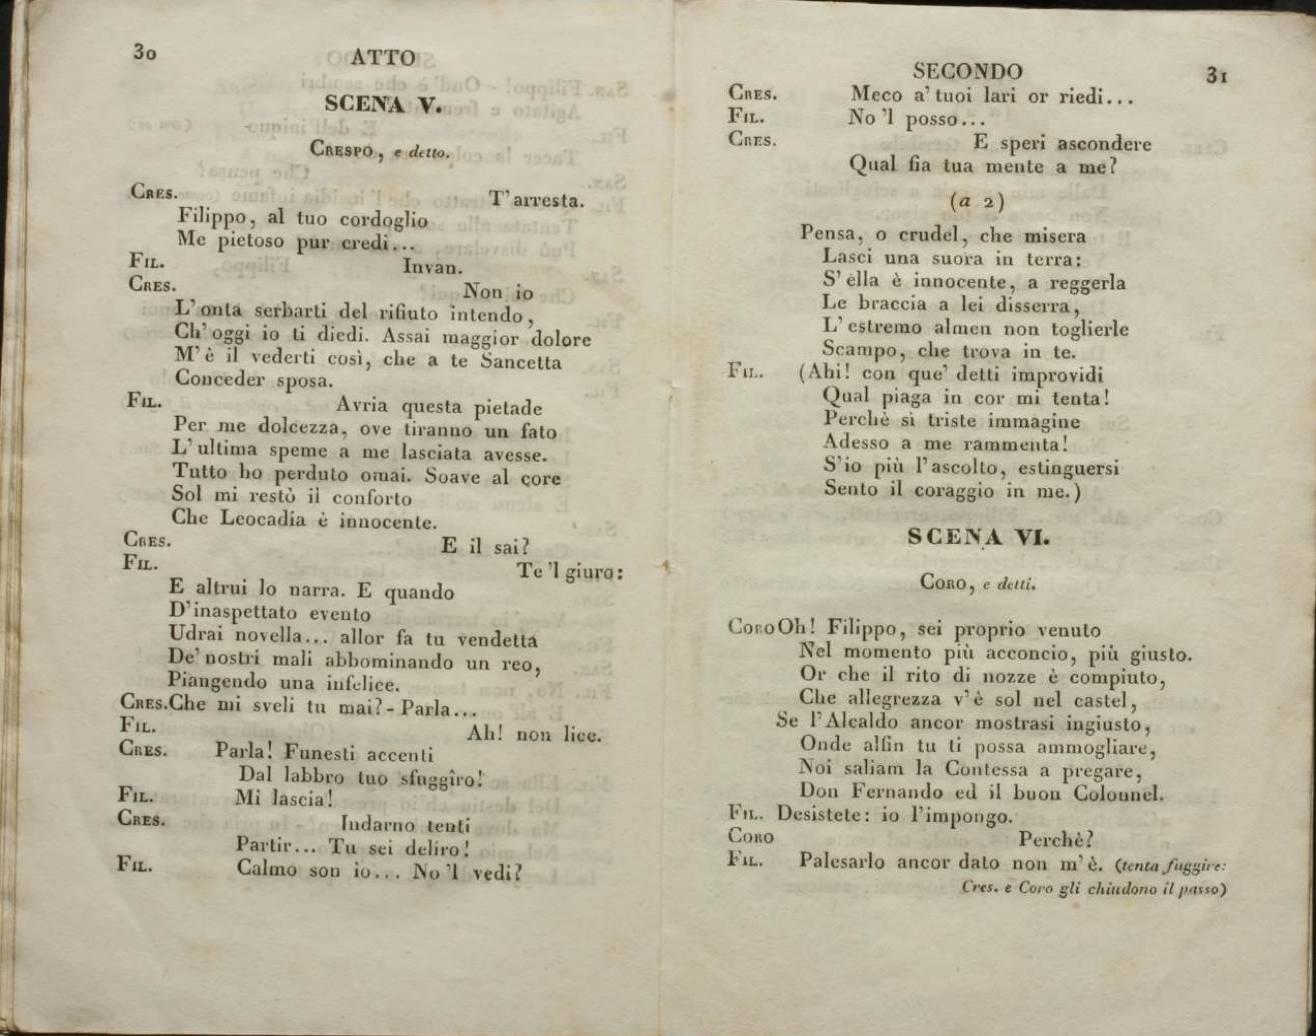 30
ATTO
SCENA V.
CRESPO, e detto.
CRES. T'arresta.
Filippo, al tuo cordoglio
Me pietoso pur credi...
FIL. Invan.
CRES. Non io
L'onta serbarti del rifiuto intendo,
Ch'oggi io ti diedi. Assai maggior dolore
M'è il vederti così, che a te Sancetta
Conceder sposa.
FIL. Avria questa pietade
Per me dolcezza, ove tiranno un fato
L'ultima speme a me lasciata avesse.
Tutto ho perduto omai. Soave al core
Sol mi restò il conforto
Che Leocadia è innocente.
CRES. E il sai?
FIL. Te 'l giuro:
E altrui lo narra. E quando
D'inaspettato evento
Udrai novella... allor fa tu vendetta
De' nostri mali abbominando un reo,
Piangendo una infelice.
CRES. Che mi sveli tu mai? - Parla...
FIL. Ah! non lice.
CRES. Parla! Funesti accenti
Dal labbro tuo sfuggîro!
FIL. Mi lascia!
CRES. Indarno tenti
Partir... Tu sei deliro!
FIL. Calmo son io... No 'l vedi?
SECONDO
31
CRES. Meco a' tuoi lari or riedi...
FIL. No 'l posso...
CRES. E speri ascondere
Qual fia tua mente a me?
(a 2)
Pensa, o crudel, che misera
Lasci una suora in terra:
S'ella è innocente, a reggerla
Le braccia a lei disserra,
L'estremo almen non toglierle
Scampo, che trova in te.
FIL. (Ahi! con que' detti improvidi
Qual piaga in cor mi tenta!
Perchè sì triste immagine
Adesso a me rammenta!
S'io più l'ascolto, estinguersi
Sento il coraggio in me.)
SCENA VI.
CORO, e detti.
CORO Oh! Filippo, sei proprio venuto
Nel momento più acconcio, più giusto.
Or che il rito di nozze è compiuto,
Che allegrezza v'è sol nel castel,
Se l'Alcaldo ancor mostrasi ingiusto,
Onde alfin tu ti possa ammogliare,
Noi saliam la Contessa a pregare,
Don Fernando ed il buon Colonnel.
FIL. Desistete: io l'impongo.
CORO Perchè?
FIL. Palesarlo ancor dato non m'è. (tenta fuggire:
Cres. e Coro gli chiudono il passo)